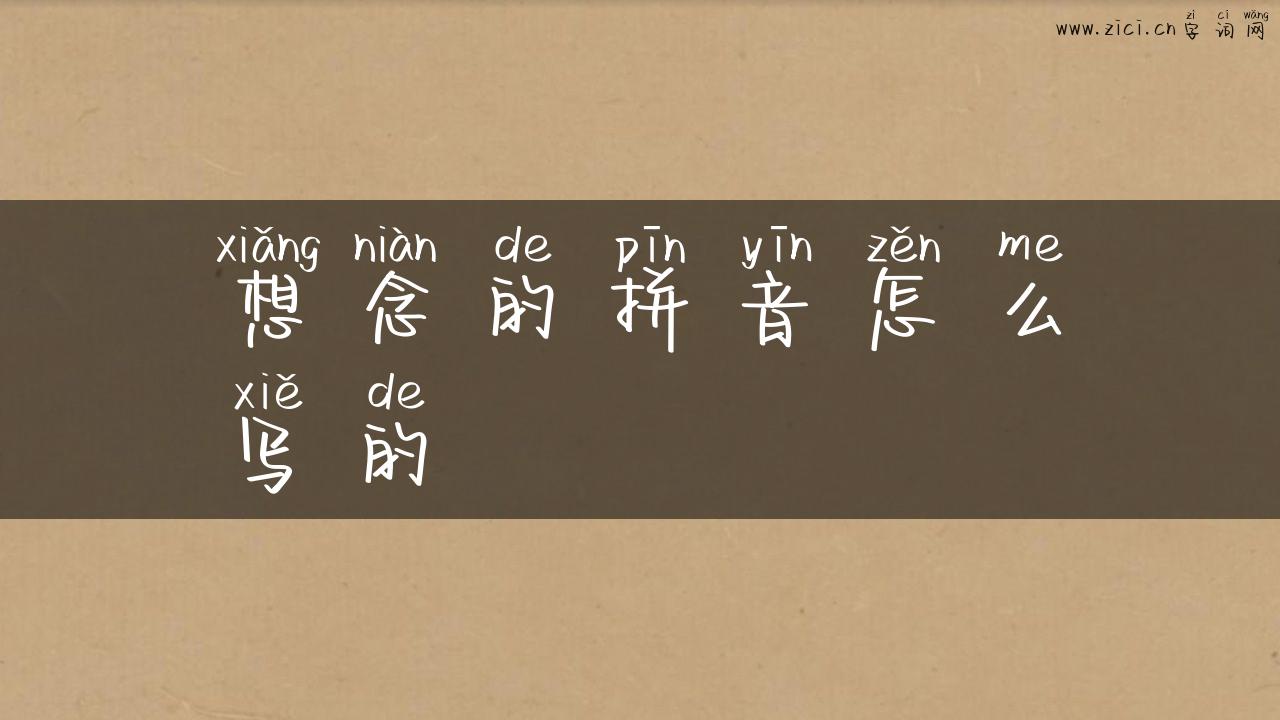 zì cí wǎng
www.zici.cn 字 词 网
xiǎng niàn de pīn yīn zěn me
想 念 的 拼 音 怎 么
xiě de
写 的